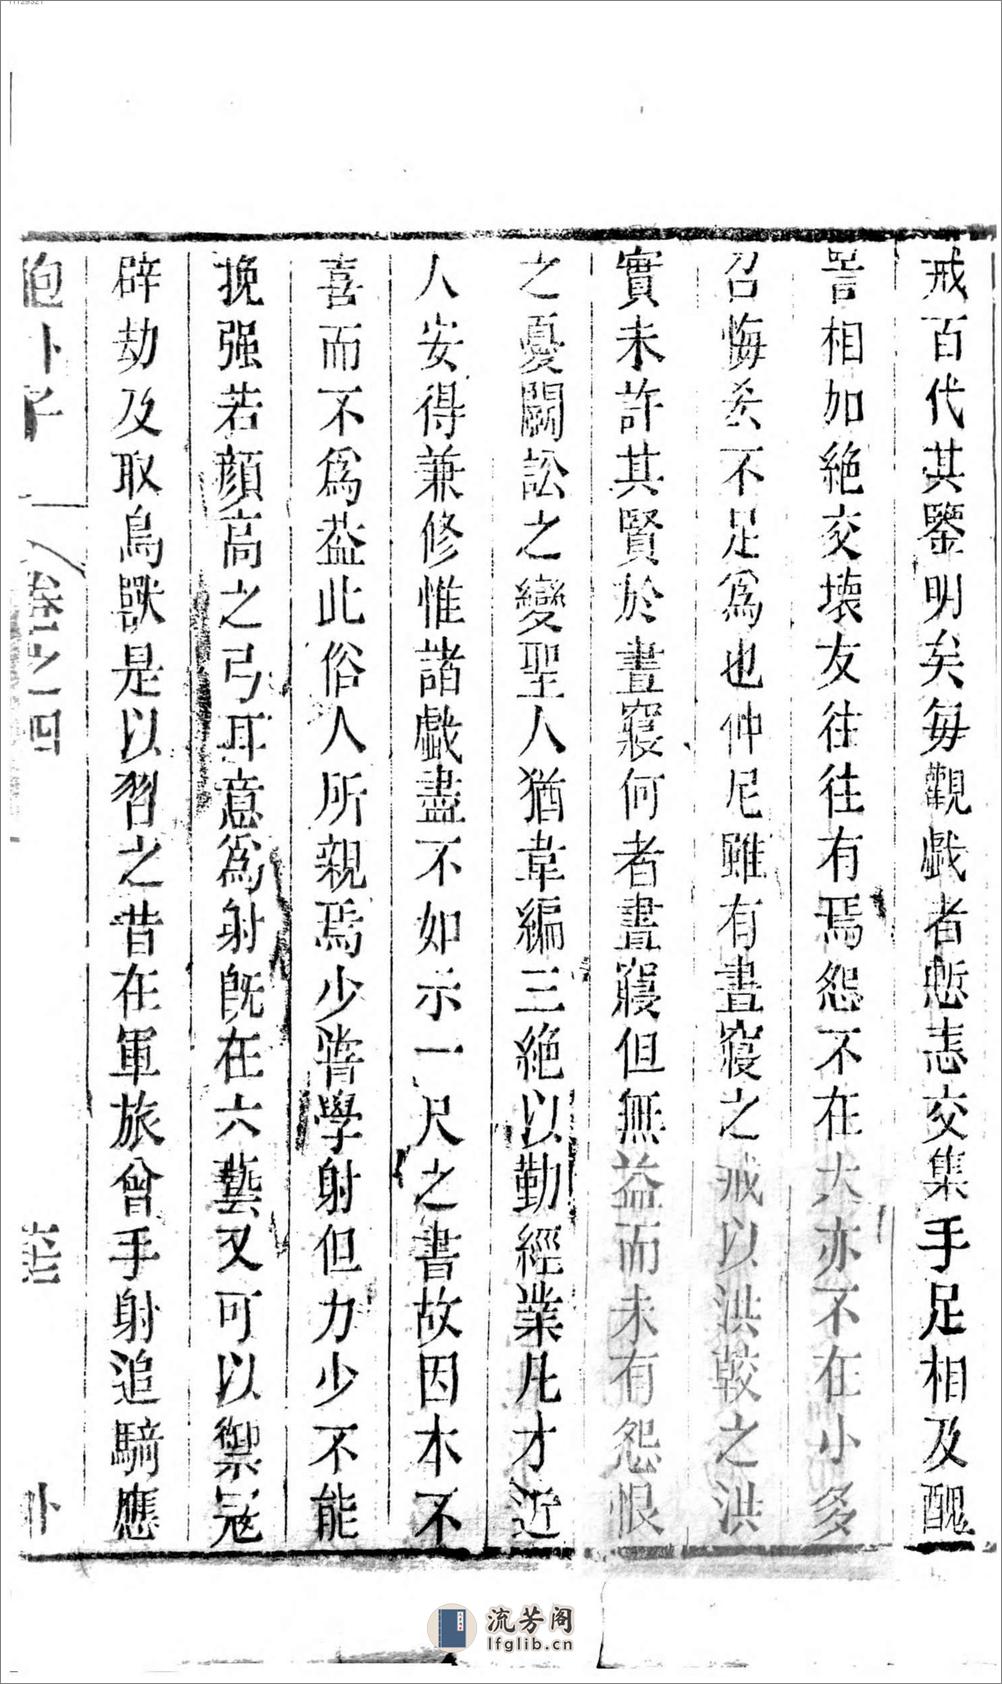 戒百代其鑒明矣每觀戲者慙恚交集手足相及醜
詈相加絕交壞友往往有焉怨不在大亦不在小多
召悔𠫤不足爲也仲尼雖有晝寢之戒以洪較之洪
實未許其賢於晝寢何者晝寢但無益而未有怨恨
之憂鬬訟之變聖人猶韋編三絕以勤經業凡才近
人安得兼修惟諸戲盡不如示一尺之書故因本不
喜而不爲葢此俗人所親焉少嘗學射但力少不能
挽强若顔高之弓耳意爲射旣在六藝又可以禦冦
辟劫及取鳥獸是以習之昔在軍旅曾手射追騎應
抱卜子
卷之四
外
流芳阁
lfglib.cn